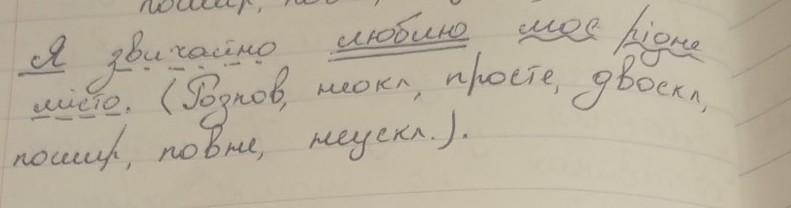 пошир, пов
Я звичайно люблю моє рідне
місто. (Розпов, неокл, просте, двоскл,
пошир, повне, неускл.).